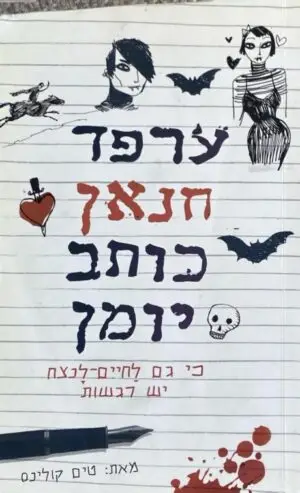 ערפד
חנאן
כותב
יומן
כי גם לַחיים-לָנצח
יש רגשות
מאת: טים קולינס